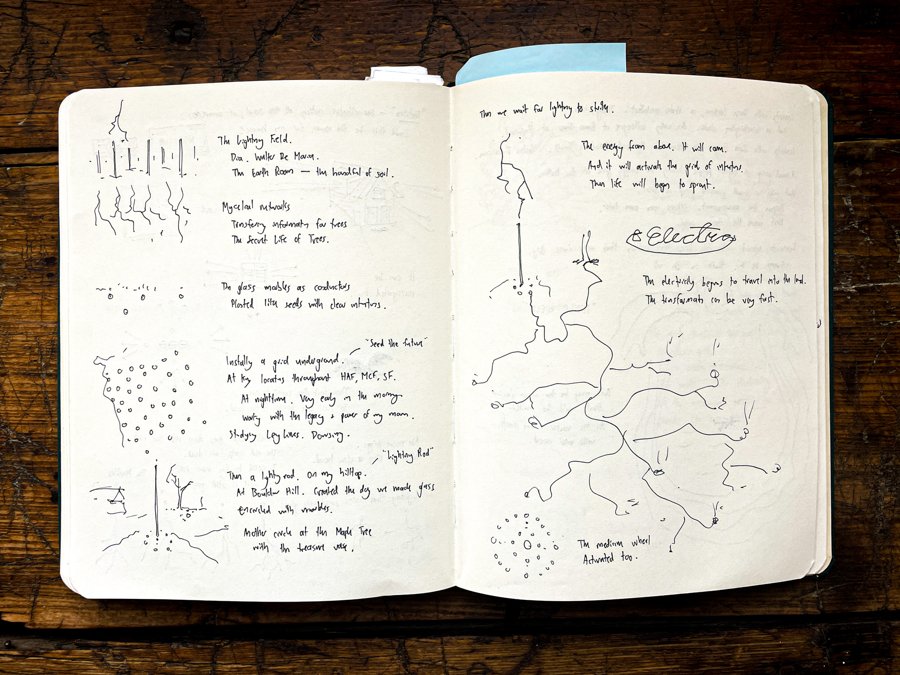 The Lightning Field.
Dia. Walter De Maria.
The Earth Room — the handful of soil.
Mycelial networks
Transferring information for trees
The Secret Life of Trees.
The glass marbles as conductors
Planted like seeds with clear intentions.
"Seed the future"
Installing a grid underground.
At key locations throughout HAF, McF, SF.
At nighttime. Very early in the morning-
working with the legacy + power of my mom.
Studying Ley lines. Dowsing.
"Lightning Rod"
Then a lightning rod. On my hilltop.
At Boulder Hill. Created the day we made glass
Encircled with marbles.
Another circle at the Maple Tree
with the treasure vase.
Then we wait for lightning to strike.
The energy from above. It will come.
And it will activate the grid of intentions.
Then life will begin to sprout.
Electra
The electricity begins to travel into the land.
The transformation can be very fast.
The medicine wheel
Activated too.